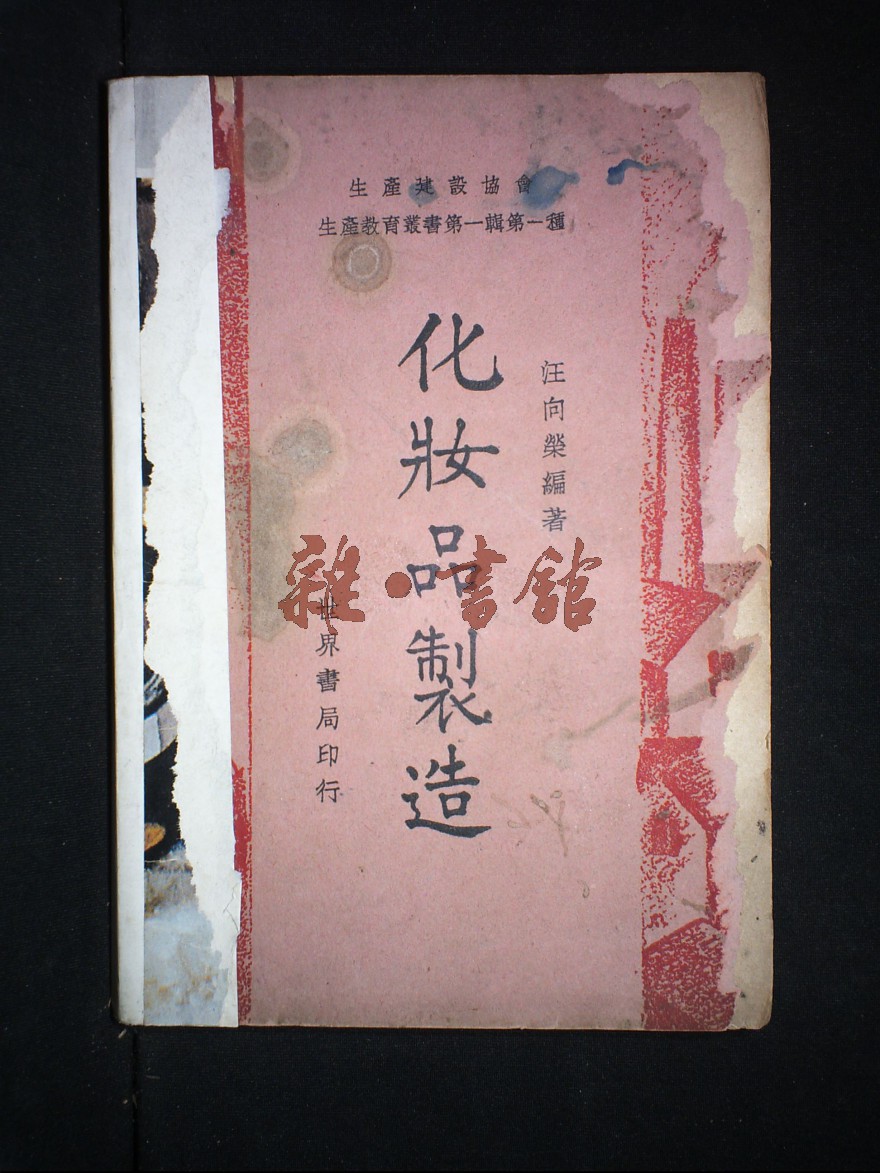 生產建設協會
生產教育叢書第一輯第一種
汪向榮編著
化妝品製造
世界書局印行
雜·書館